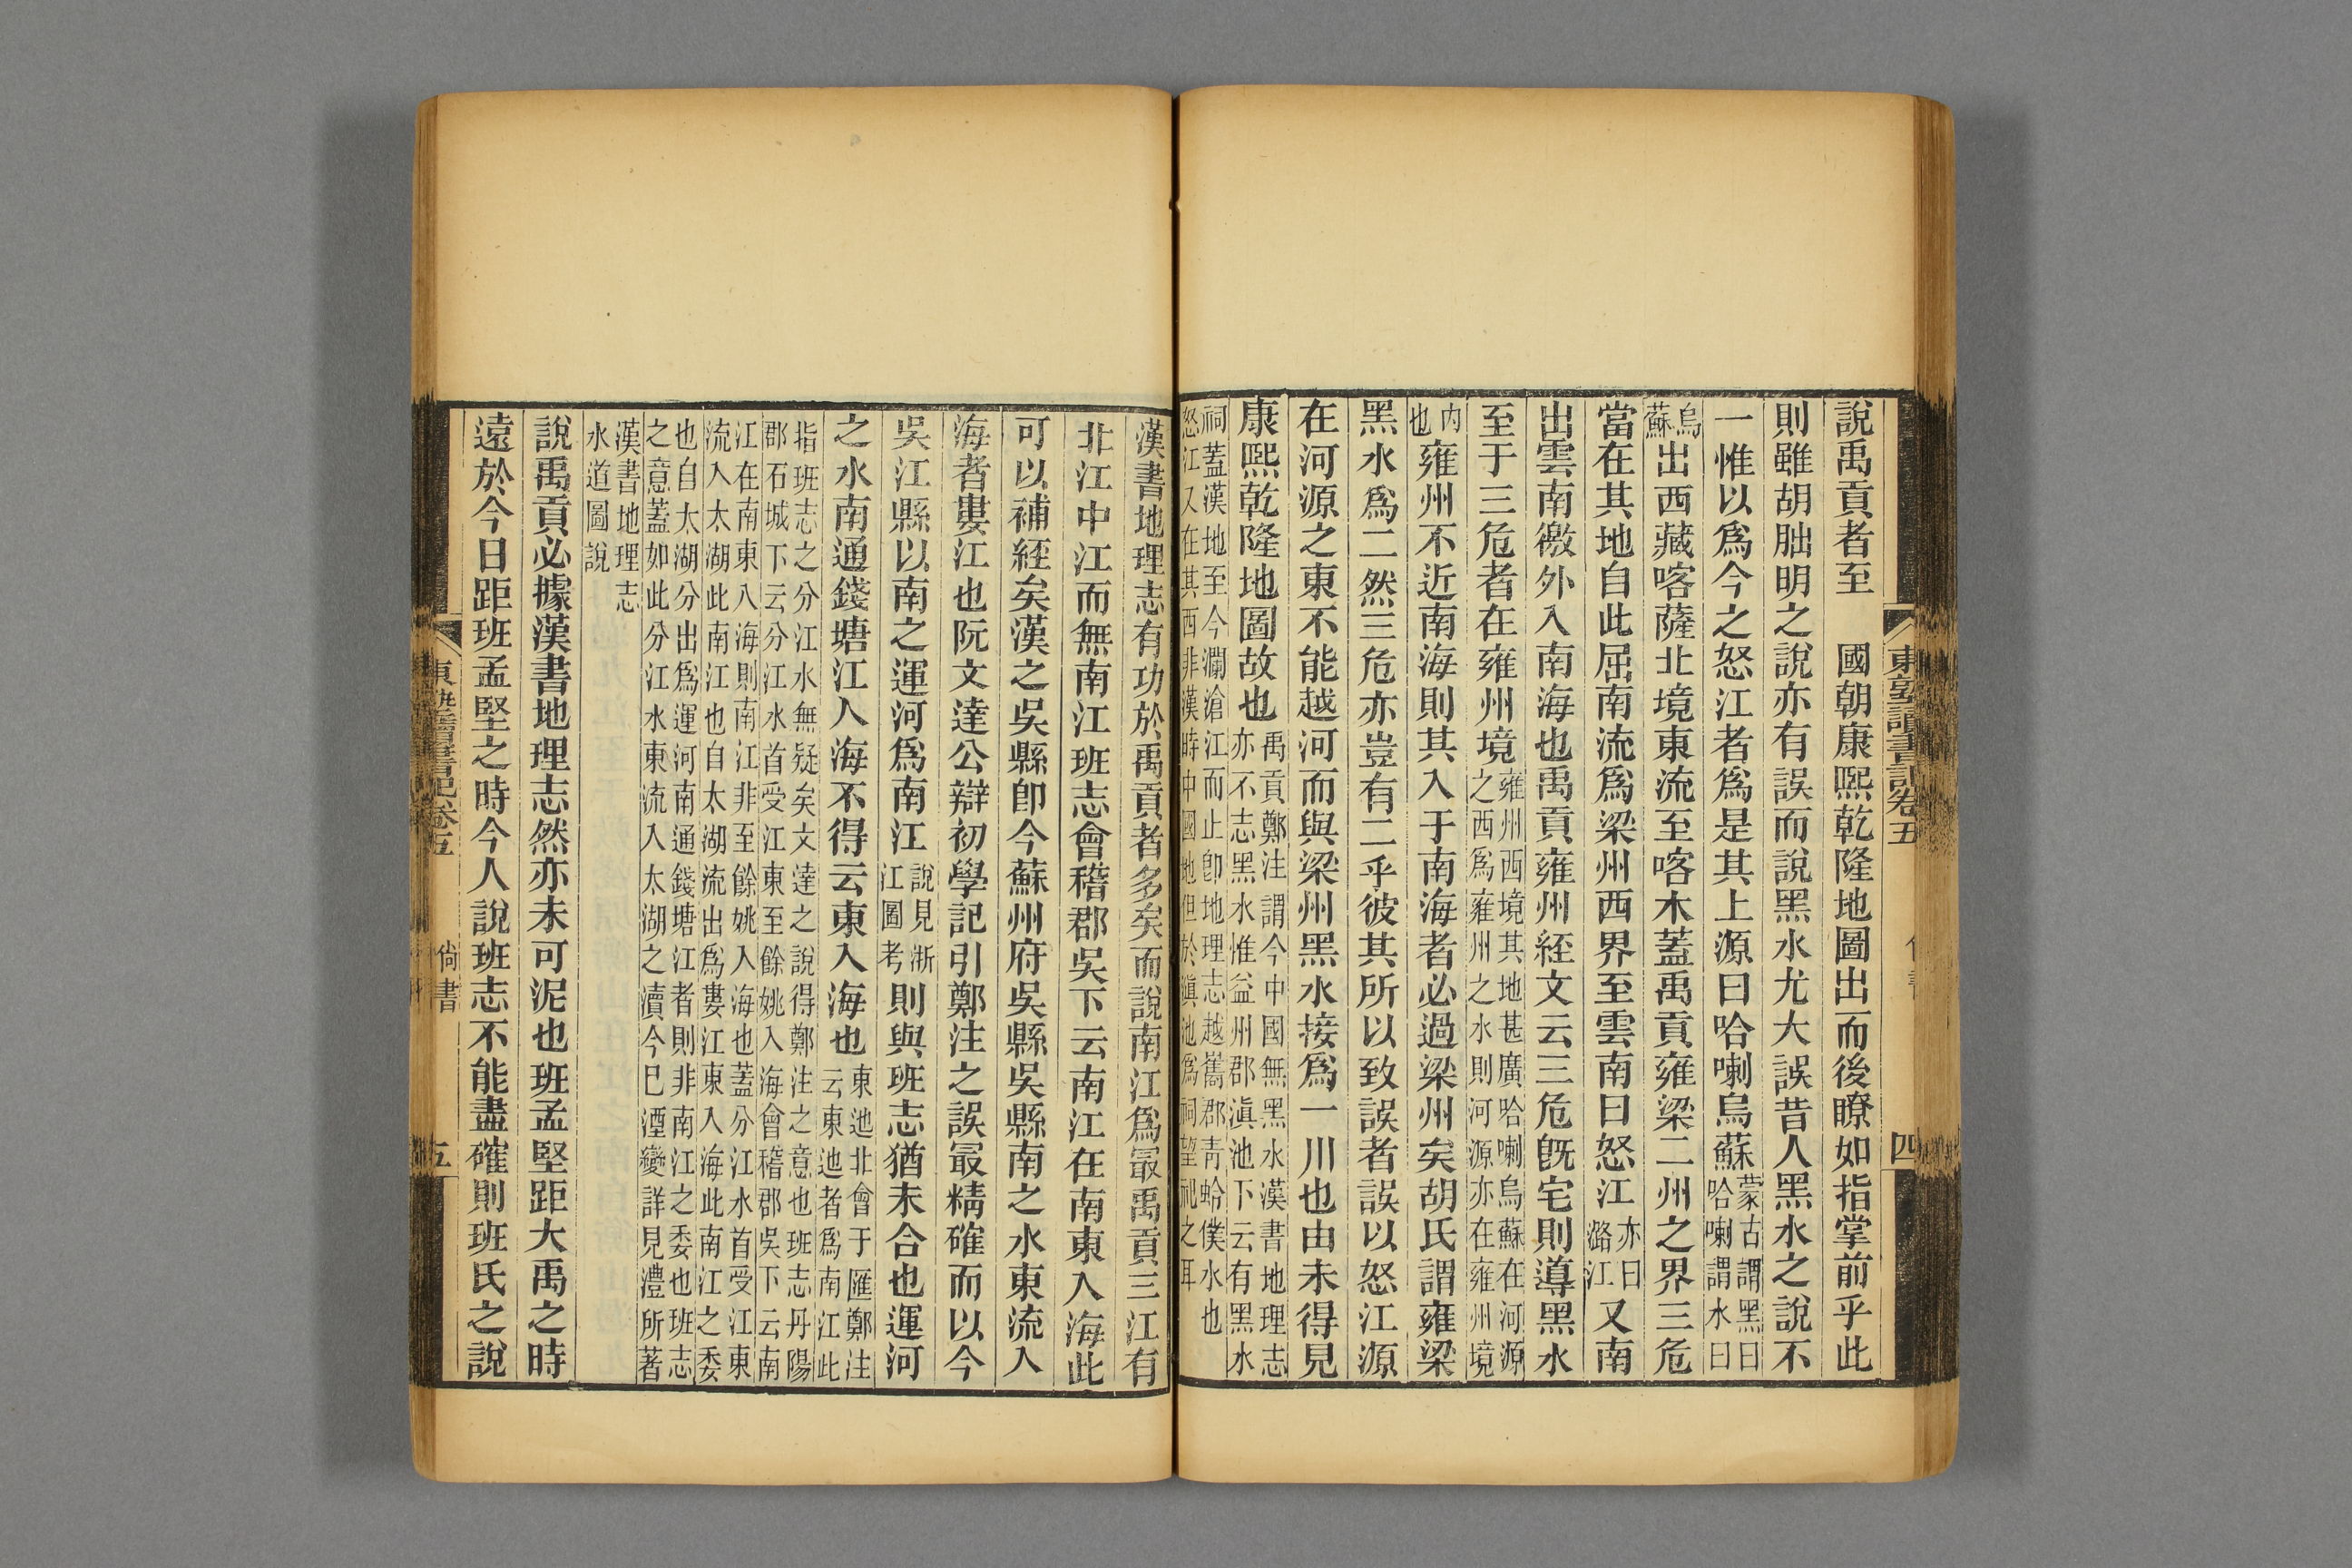 說禹貢者至　國朝康熙乾隆地圖出而後瞭如指掌前乎此
則雖胡朏明之說亦有誤而說黑水尤大誤昔人黑水之說不
一惟以爲今之怒江者爲是其上源曰哈喇烏蘇蒙古謂黑曰哈喇謂水曰
烏蘇出西藏喀薩北境東流至喀木蓋禹貢雍梁二州之界三危
當在其地自此屈南流爲梁州西界至雲南曰怒江亦曰潞江又南
出雲南徼外入南海也禹貢雍州經文云三危旣宅則導黑水
至于三危者在雍州境雍州西境其地甚廣哈喇烏蘇在河源之西爲雍州之水則河源亦在雍州境
內也雍州不近南海則其入于南海者必過梁州矣胡氏謂雍梁
黑水爲二然三危亦豈有二乎彼其所以致誤者誤以怒江源
在河源之東不能越河而與梁州黑水接爲一川也由未得見
康熙乾隆地圖故也禹貢鄭注謂今中國無黑水漢書地理志亦不志黑水惟益州郡滇池下云有黑水
祠蓋漢地至今瀾滄江而止卽地理志越巂郡靑蛉僕水也怒江又在其西非漢時中國地但於滇池爲祠望祀之耳
東塾讀書記卷五
四
漢書地理志有功於禹貢者多矣而說南江爲最禹貢三江有
北江中江而無南江班志會稽郡吳下云南江在南東入海此
可以補經矣漢之吳縣卽今蘇州府吳縣吳縣南之水東流入
海者婁江也阮文達公辯初學記引鄭注之誤最精確而以今
吳江縣以南之運河爲南江說見浙江圖考則與班志猶未合也運河
之水南通錢塘江入海不得云東入海也東迆北會于匯鄭注云東迆者爲南江此
指班志之分江水無疑矣文達之說得鄭注之意也班志丹陽郡石城下云分江水首受江東至餘姚入海會稽郡吳下云南
江在南東入海則南江非至餘姚入海也蓋分江水首受江東流入太湖此南江也自太湖流出爲婁江東入海此南江之委
也自太湖分出爲運河南通錢塘江者則非南江之委也班志之意蓋如此分江水東流入太湖之瀆今已湮變詳見澧所著
漢書地理志水道圖說
說禹貢必據漢書地理志然亦未可泥也班孟堅距大禹之時
遠於今日距班孟堅之時今人說班志不能盡確則班氏之說
東塾讀書記卷五
尙書
五